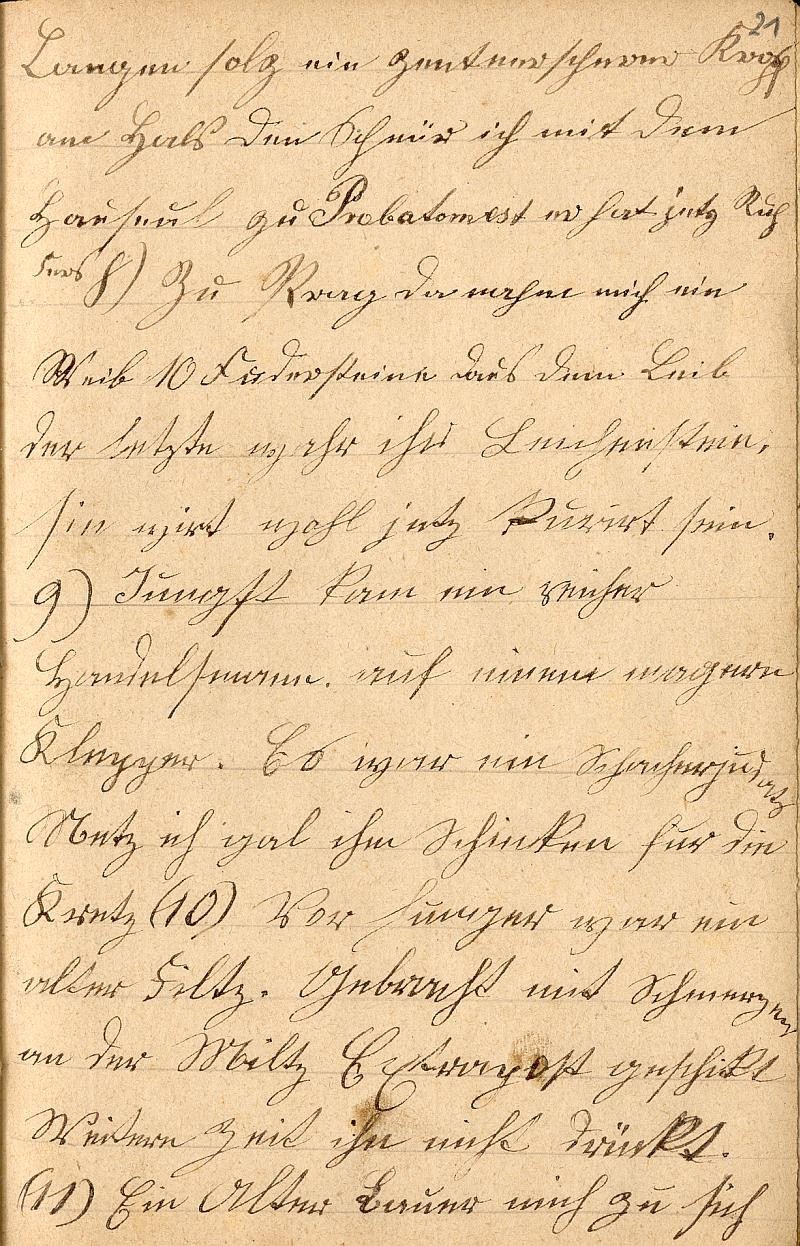 21
Langen folz ein zentnerschwerer Kropf
am Hals den Schnür ich mit dem
Hauseul zu Probatomest er hat jetz Ruh
Fers 8) Zu Prag da nahm mich ein
Weib 10 Fudersteine aus dem Leib
der letzte wahr ihr Leichenstein,
sie wirt wohl jetz Kurirt sein.
9) Jungst kam ein reicher
Handelsmann. auf einem magern
Klepper. Es war ein Schacherjud aus
Metz ich gab ihm Schinken fur die
Kretz (10) Vor hunger war ein
alter Filtz. Gebracht mit Schmerzen
an der Miltz Extrapost geschikt
Weitern Zeit ihn nicht drückt.
(11) Ein Alter Bauer mich zu sich